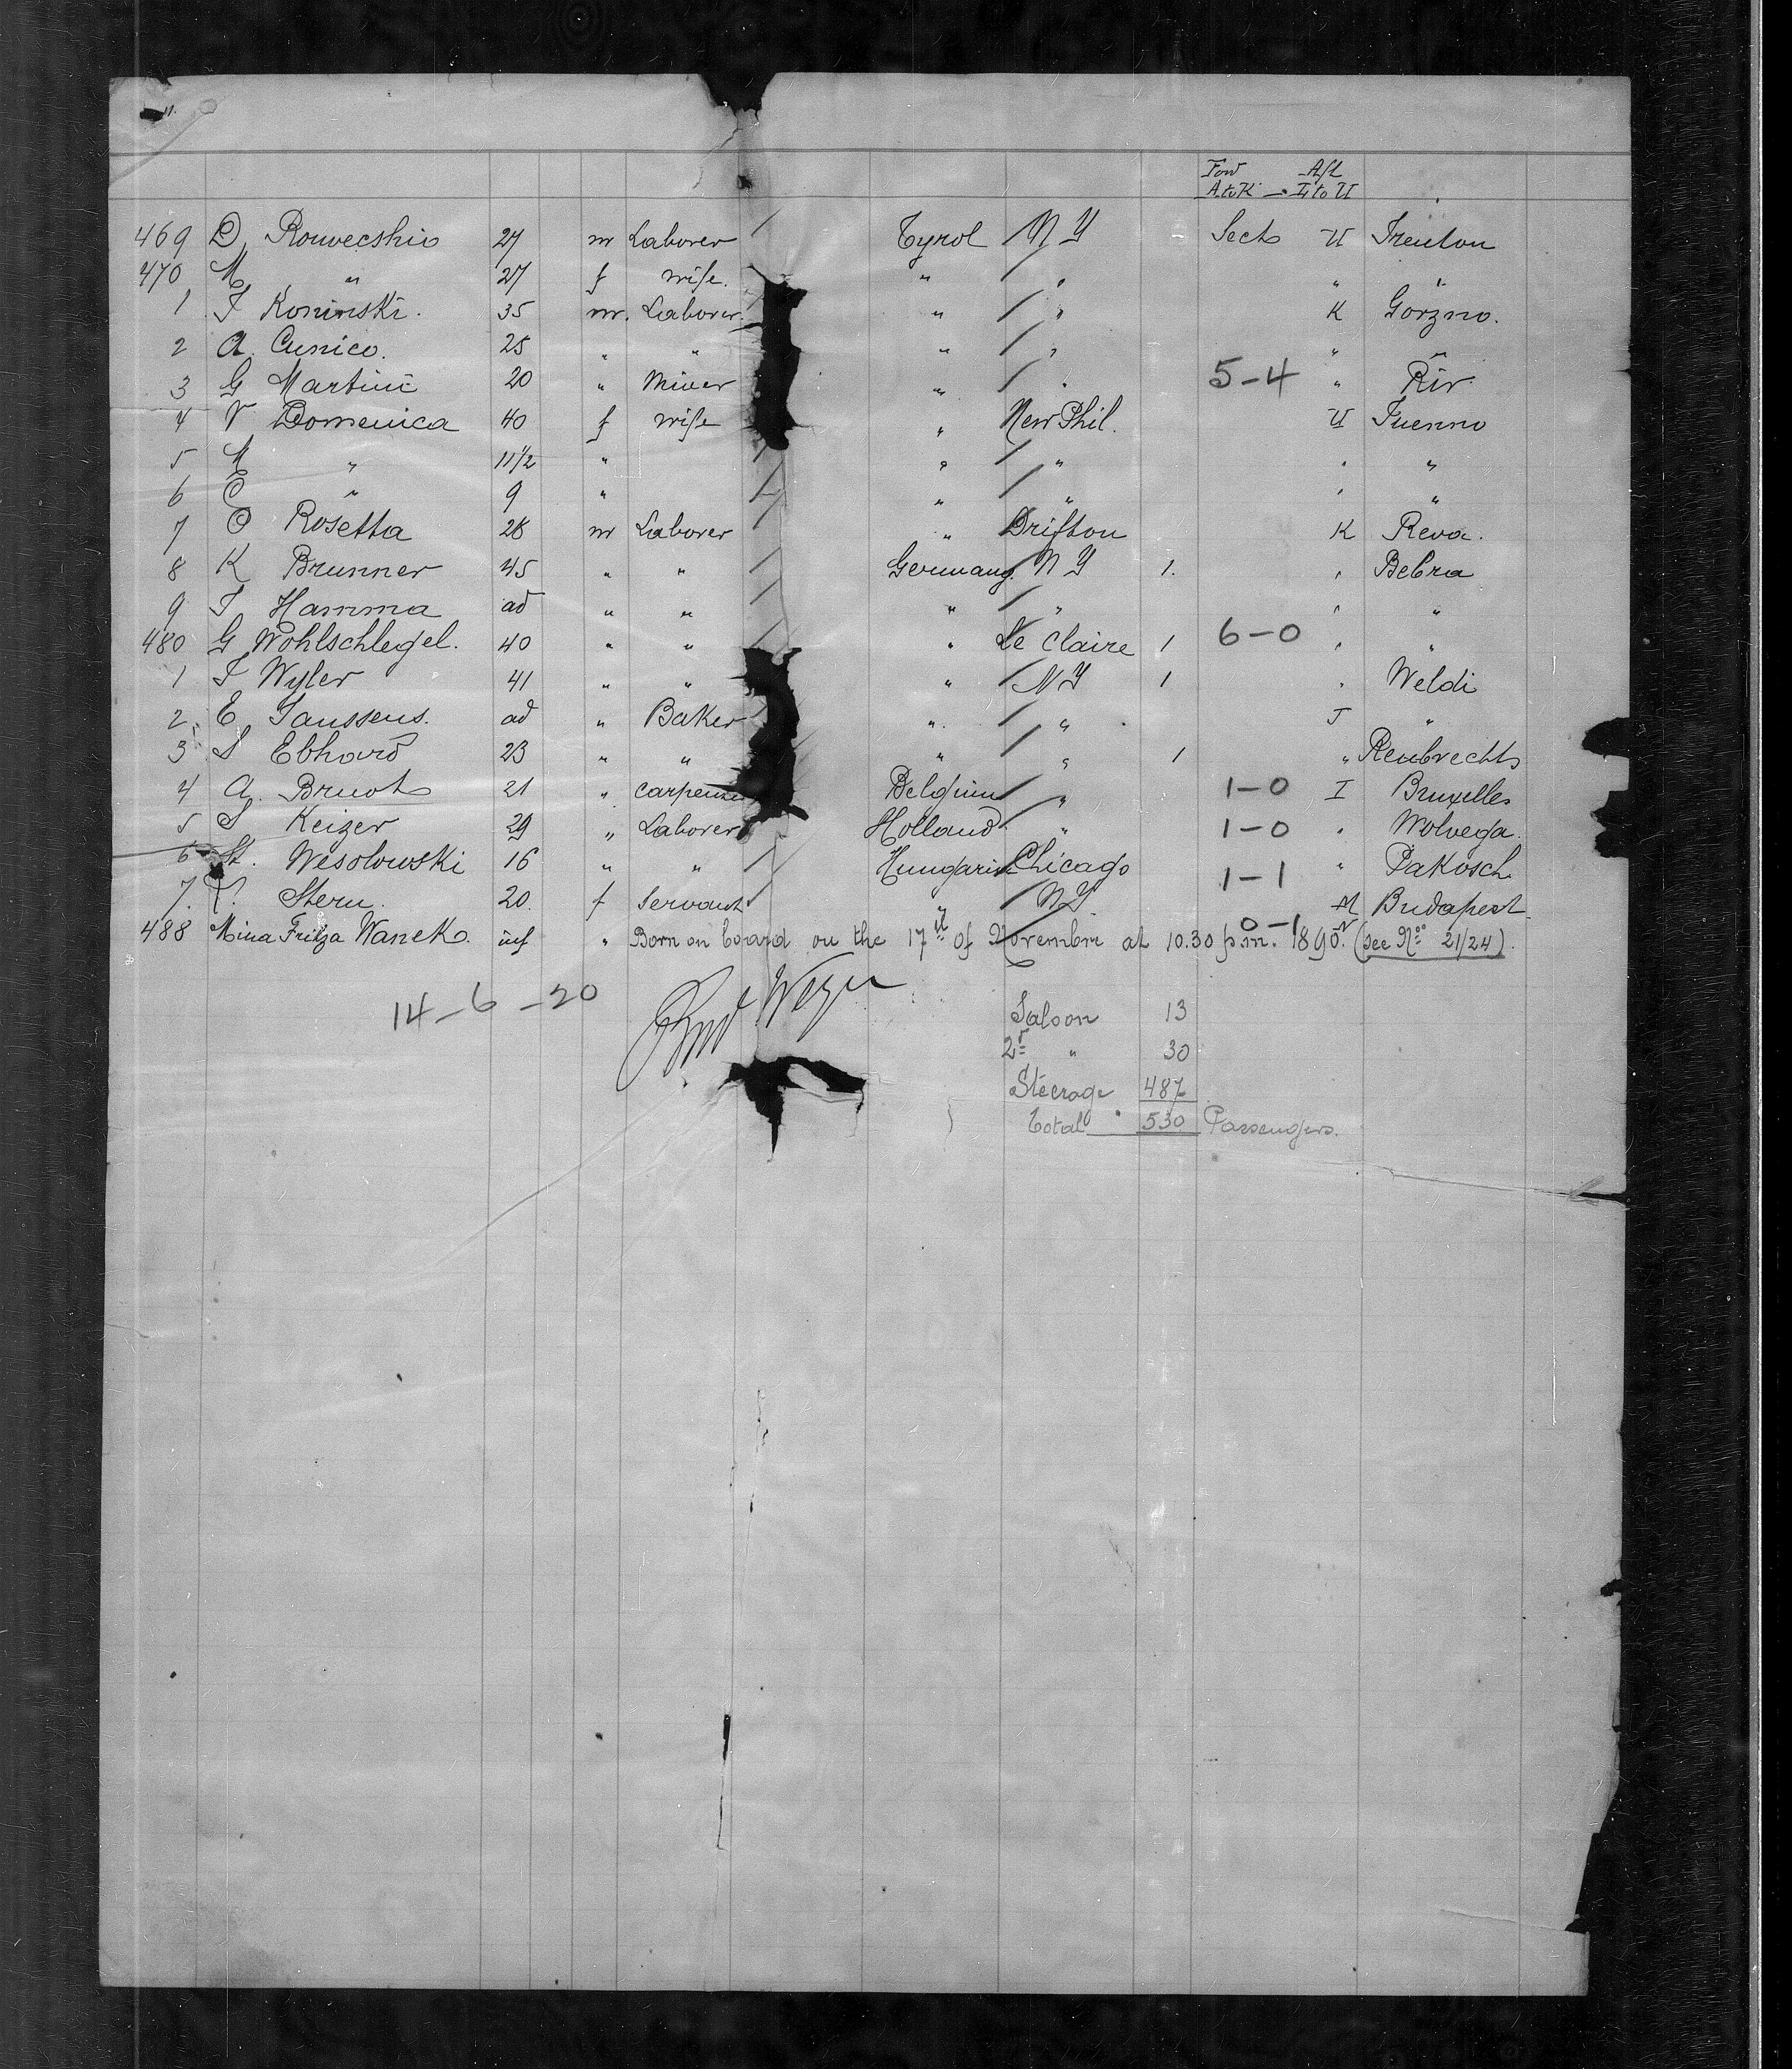 Forw Aft
A to K — I to U
469 D. Rouvecshio 27 m Laborer Tyrol N Y Sects U Trenton
470 M " 27 f wife " " " "
1 J Koninski. 35 m. Laborer. " " K Gorzno.
2 A. Cunico. 25 " " " " " "
3 G Martini 20 " Miner " " 5-4 " Riv.
4 V Domenica 40 f wife " New Phil. U Tuenno
5 M " 11 1/2 " " " " "
6 C " 9 " " " " "
7 O Rosetta 28 m Laborer " Drifton K Reva.
8 K Brunner 45 " " Germany. N Y 1. " Bebra
9 J Hamma ad " " " " " "
480 G Wohlschlegel. 40 " " " Le Claire 1 6-0 " "
1 J Wyler 41 " " " N Y 1 " Weldi
2. E. Janssens. ad " Baker " " J "
3 S Ebhard 23 " " " " 1 " Renbrechts
4 A. Bruot 21 " Carpenter Belgium " 1-0 I Bruxelles
5 S Keizer 29 " Laborer Holland " 1-0 " Wolvega.
6 St. Wesolowski 16 " " Hungaria Chicago 1-1 " Pakosch
7. Stern. 20. f Servant " N Y. 0-1 M Budapest.
488 Mina Fritza Wanek. inf " Born on board on the 17th of Novembre at 10.30 p.m. 1890. (see Nos 21/24).
14-6-20
Saloon 13
2d " 30
Steerage 487
Total 530 Passengers.